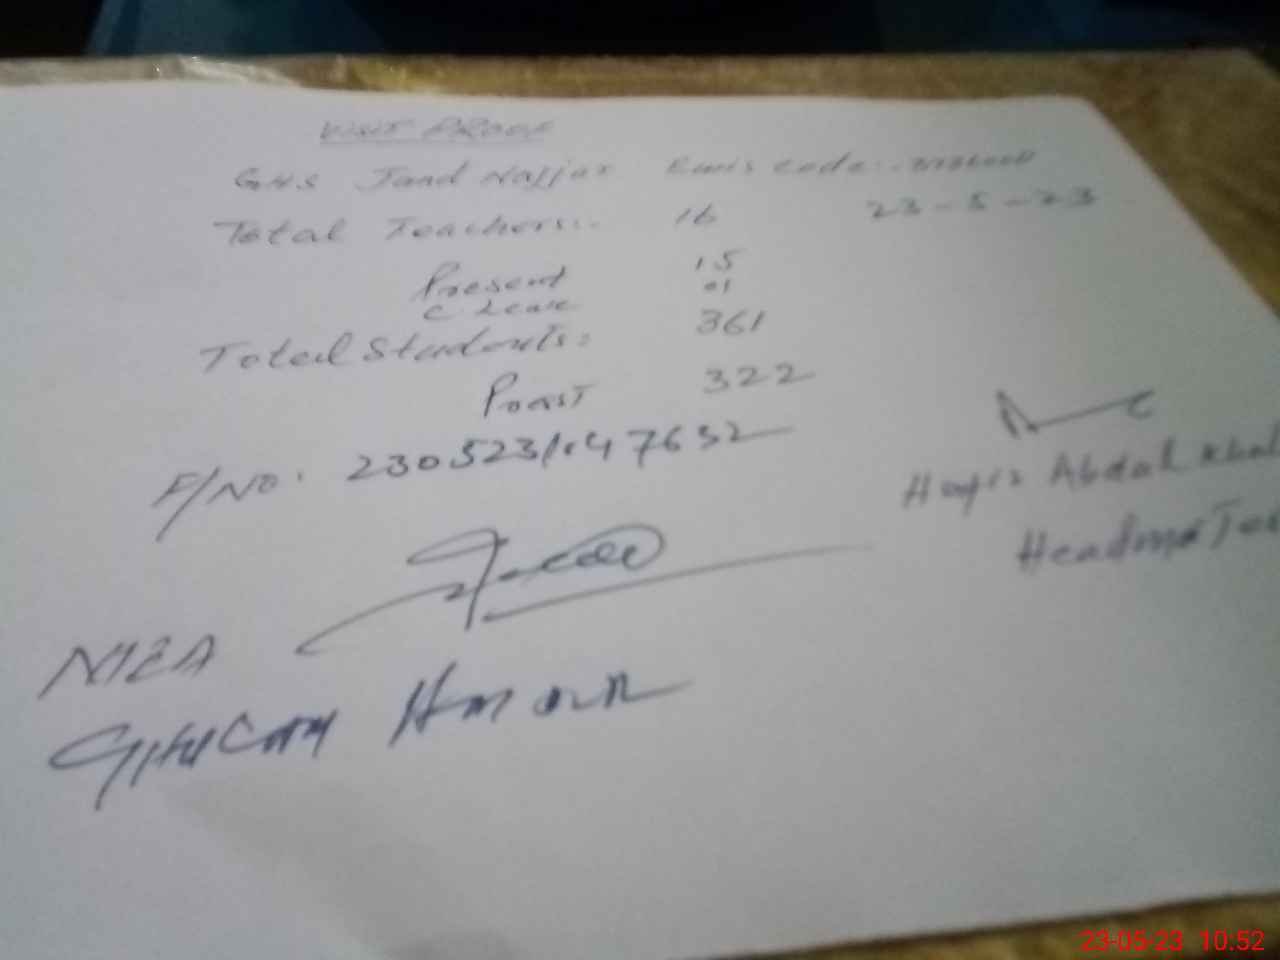 VISIT PROOF
GHS Jand Najjar Emis code:-
Total Teachers:- 16 23-5-23
Present 15
C. Leave 01
Total Students: 361
Presst 322
F/NO. 230523/147632
Hafiz Abdul Khal
Headma Te
23-05-23 10:52